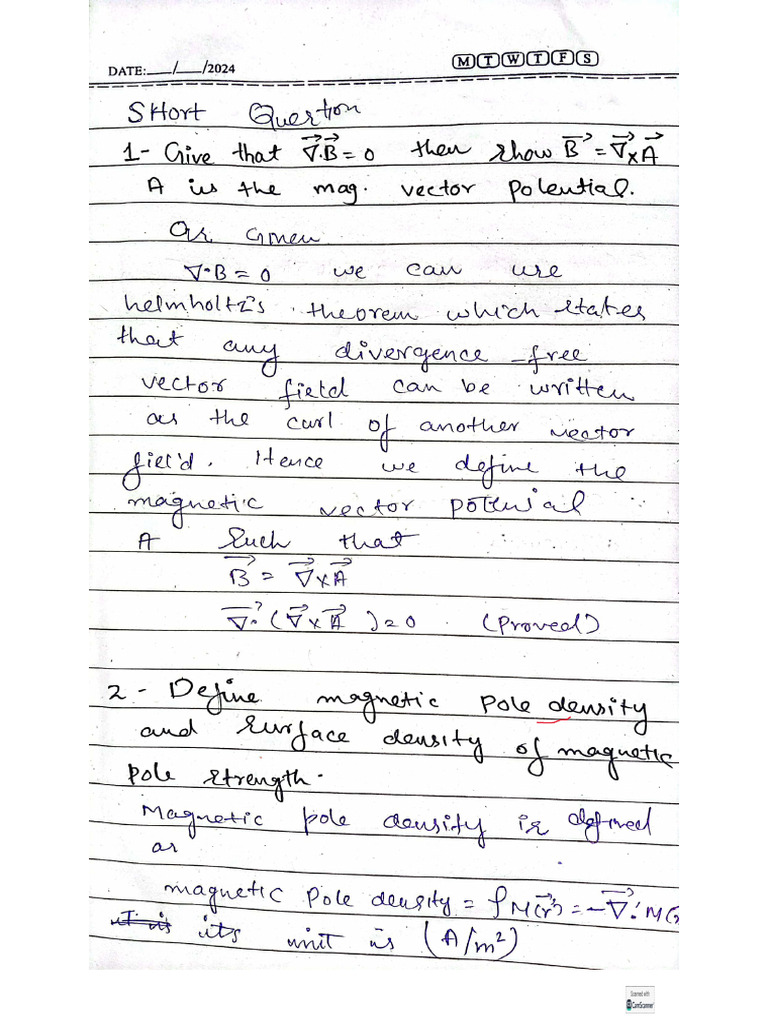 DATE:___/___/2024
M T W T F S
SHort Question
1- Give that ∇⃗.B⃗ = 0 then show B⃗ = ∇⃗×A⃗
A is the mag. vector potential.
as Given
∇·B = 0 we can use
helmholtz's theorem which states
that any divergence free
vector field can be written
as the curl of another vector
field. Hence we define the
magnetic vector potenial
A Such that
B⃗ = ∇⃗×A⃗
∇⃗·(∇⃗×A⃗) = 0 (Proved)
2 - Define magnetic pole density
and surface density of magnetic
pole strength.
Magnetic pole density is defined
as
magnetic pole density = ρM(r⃗') = -∇⃗'.M(r
its unit is (A/m²)
Scanned with
CamScanner